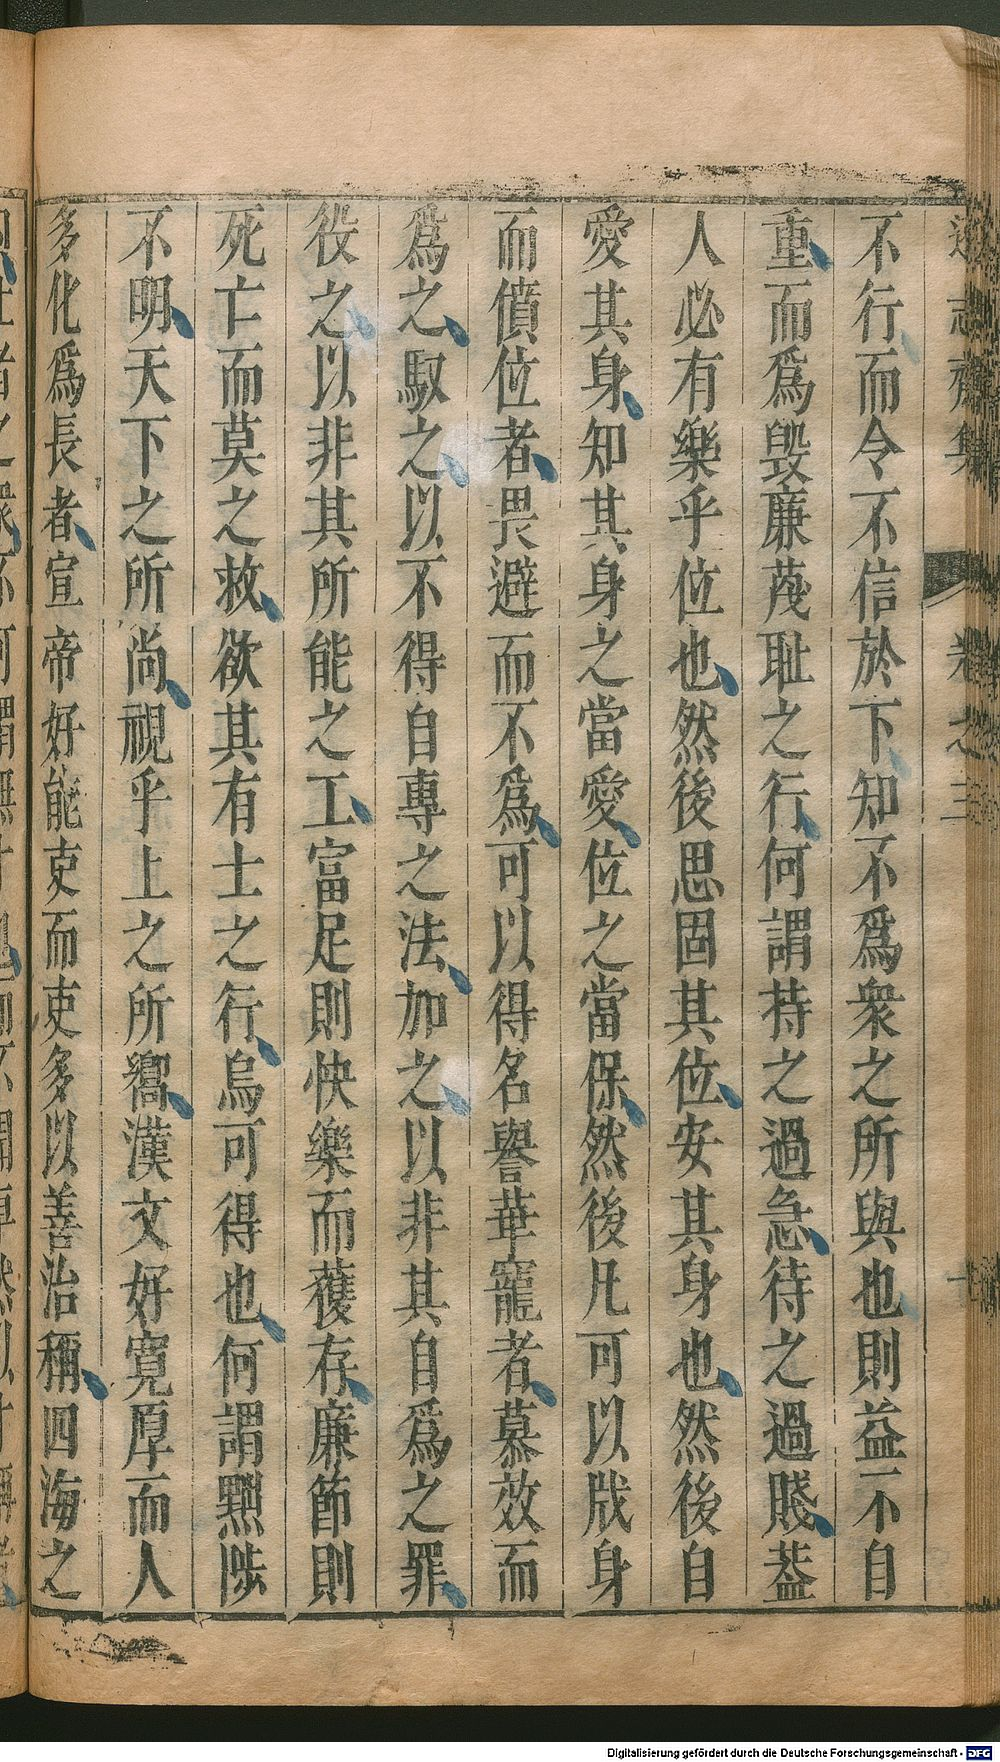 遜志齋集 卷之三
不行而令不信於下知不爲衆之所與也則益不自
重而爲毁廉蔑恥之行何謂持之過急待之過賤蓋
人必有樂乎位也然後思固其位安其身也然後自
愛其身知其身之當愛位之當保然後凡可以戕身
而僨位者畏避而不爲可以得名譽華寵者慕效而
爲之馭之以不得自專之法加之以非其自爲之罪
役之以非其所能之工富足則快樂而獲存廉節則
死亡而莫之救欲其有士之行烏可得也何謂黜陟
不明天下之所尚視乎上之所嚮漢文好寬厚而人
多化爲長者宣帝好能吏而吏多以善治稱四海之
Digitalisierung gefördert durch die Deutsche Forschungsgemeinschaft - DFG